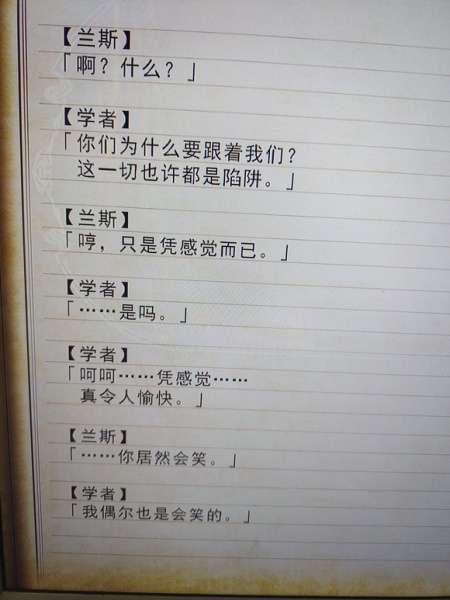 【兰斯】
「啊？什么？」
【学者】
「你们为什么要跟着我们？
这一切也许都是陷阱。」
【兰斯】
「哼，只是凭感觉而已。」
【学者】
「……是吗。」
【学者】
「呵呵……凭感觉……
真令人愉快。」
【兰斯】
「……你居然会笑。」
【学者】
「我偶尔也是会笑的。」